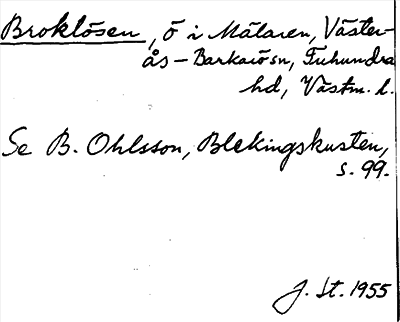 Broklösen, ö i Mälaren, Väster-
ås-Barkarösn, Tuhundra
hd, Västm. l.
Se B. Ohlsson, Blekingskusten,
s. 99.
J. St. 1955